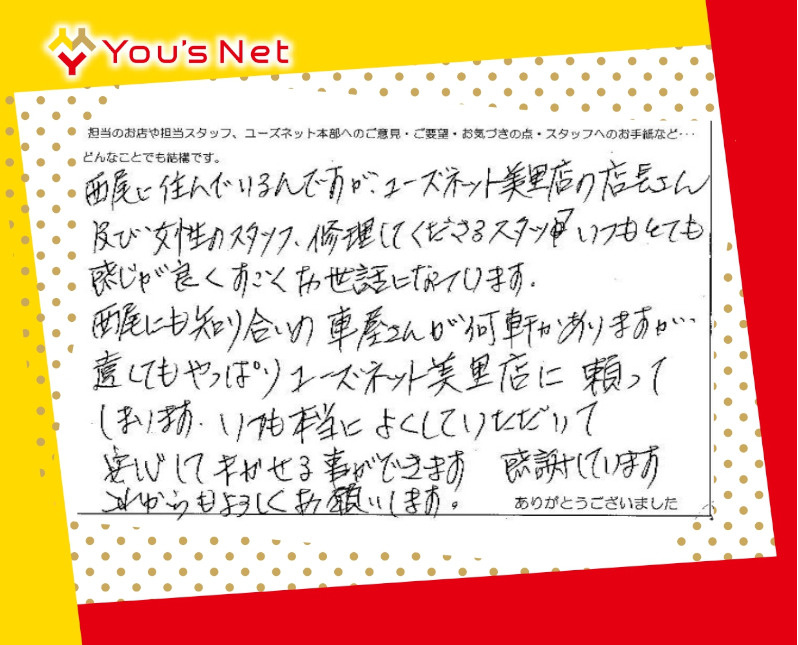 You's Net
担当のお店や担当スタッフ、ユーズネット本部へのご意見・ご要望・お気づきの点・スタッフへのお手紙など・・・
どんなことでも結構です。
西尾に住んでいるんですが、ユーズネット美里店の店長さん
及び女性のスタッフ、修理してくださるスタッフ いつもとても
感じが良くすごくお世話になっています。
西尾にも知り合いの車屋さんが何軒かありますが…
遠くてもやっぱりユーズネット美里店に頼って
しまいます。いつも本当によくしていただいて
安心してまかせる事ができます 感謝しています
これからもよろしくお願いします。
ありがとうございました